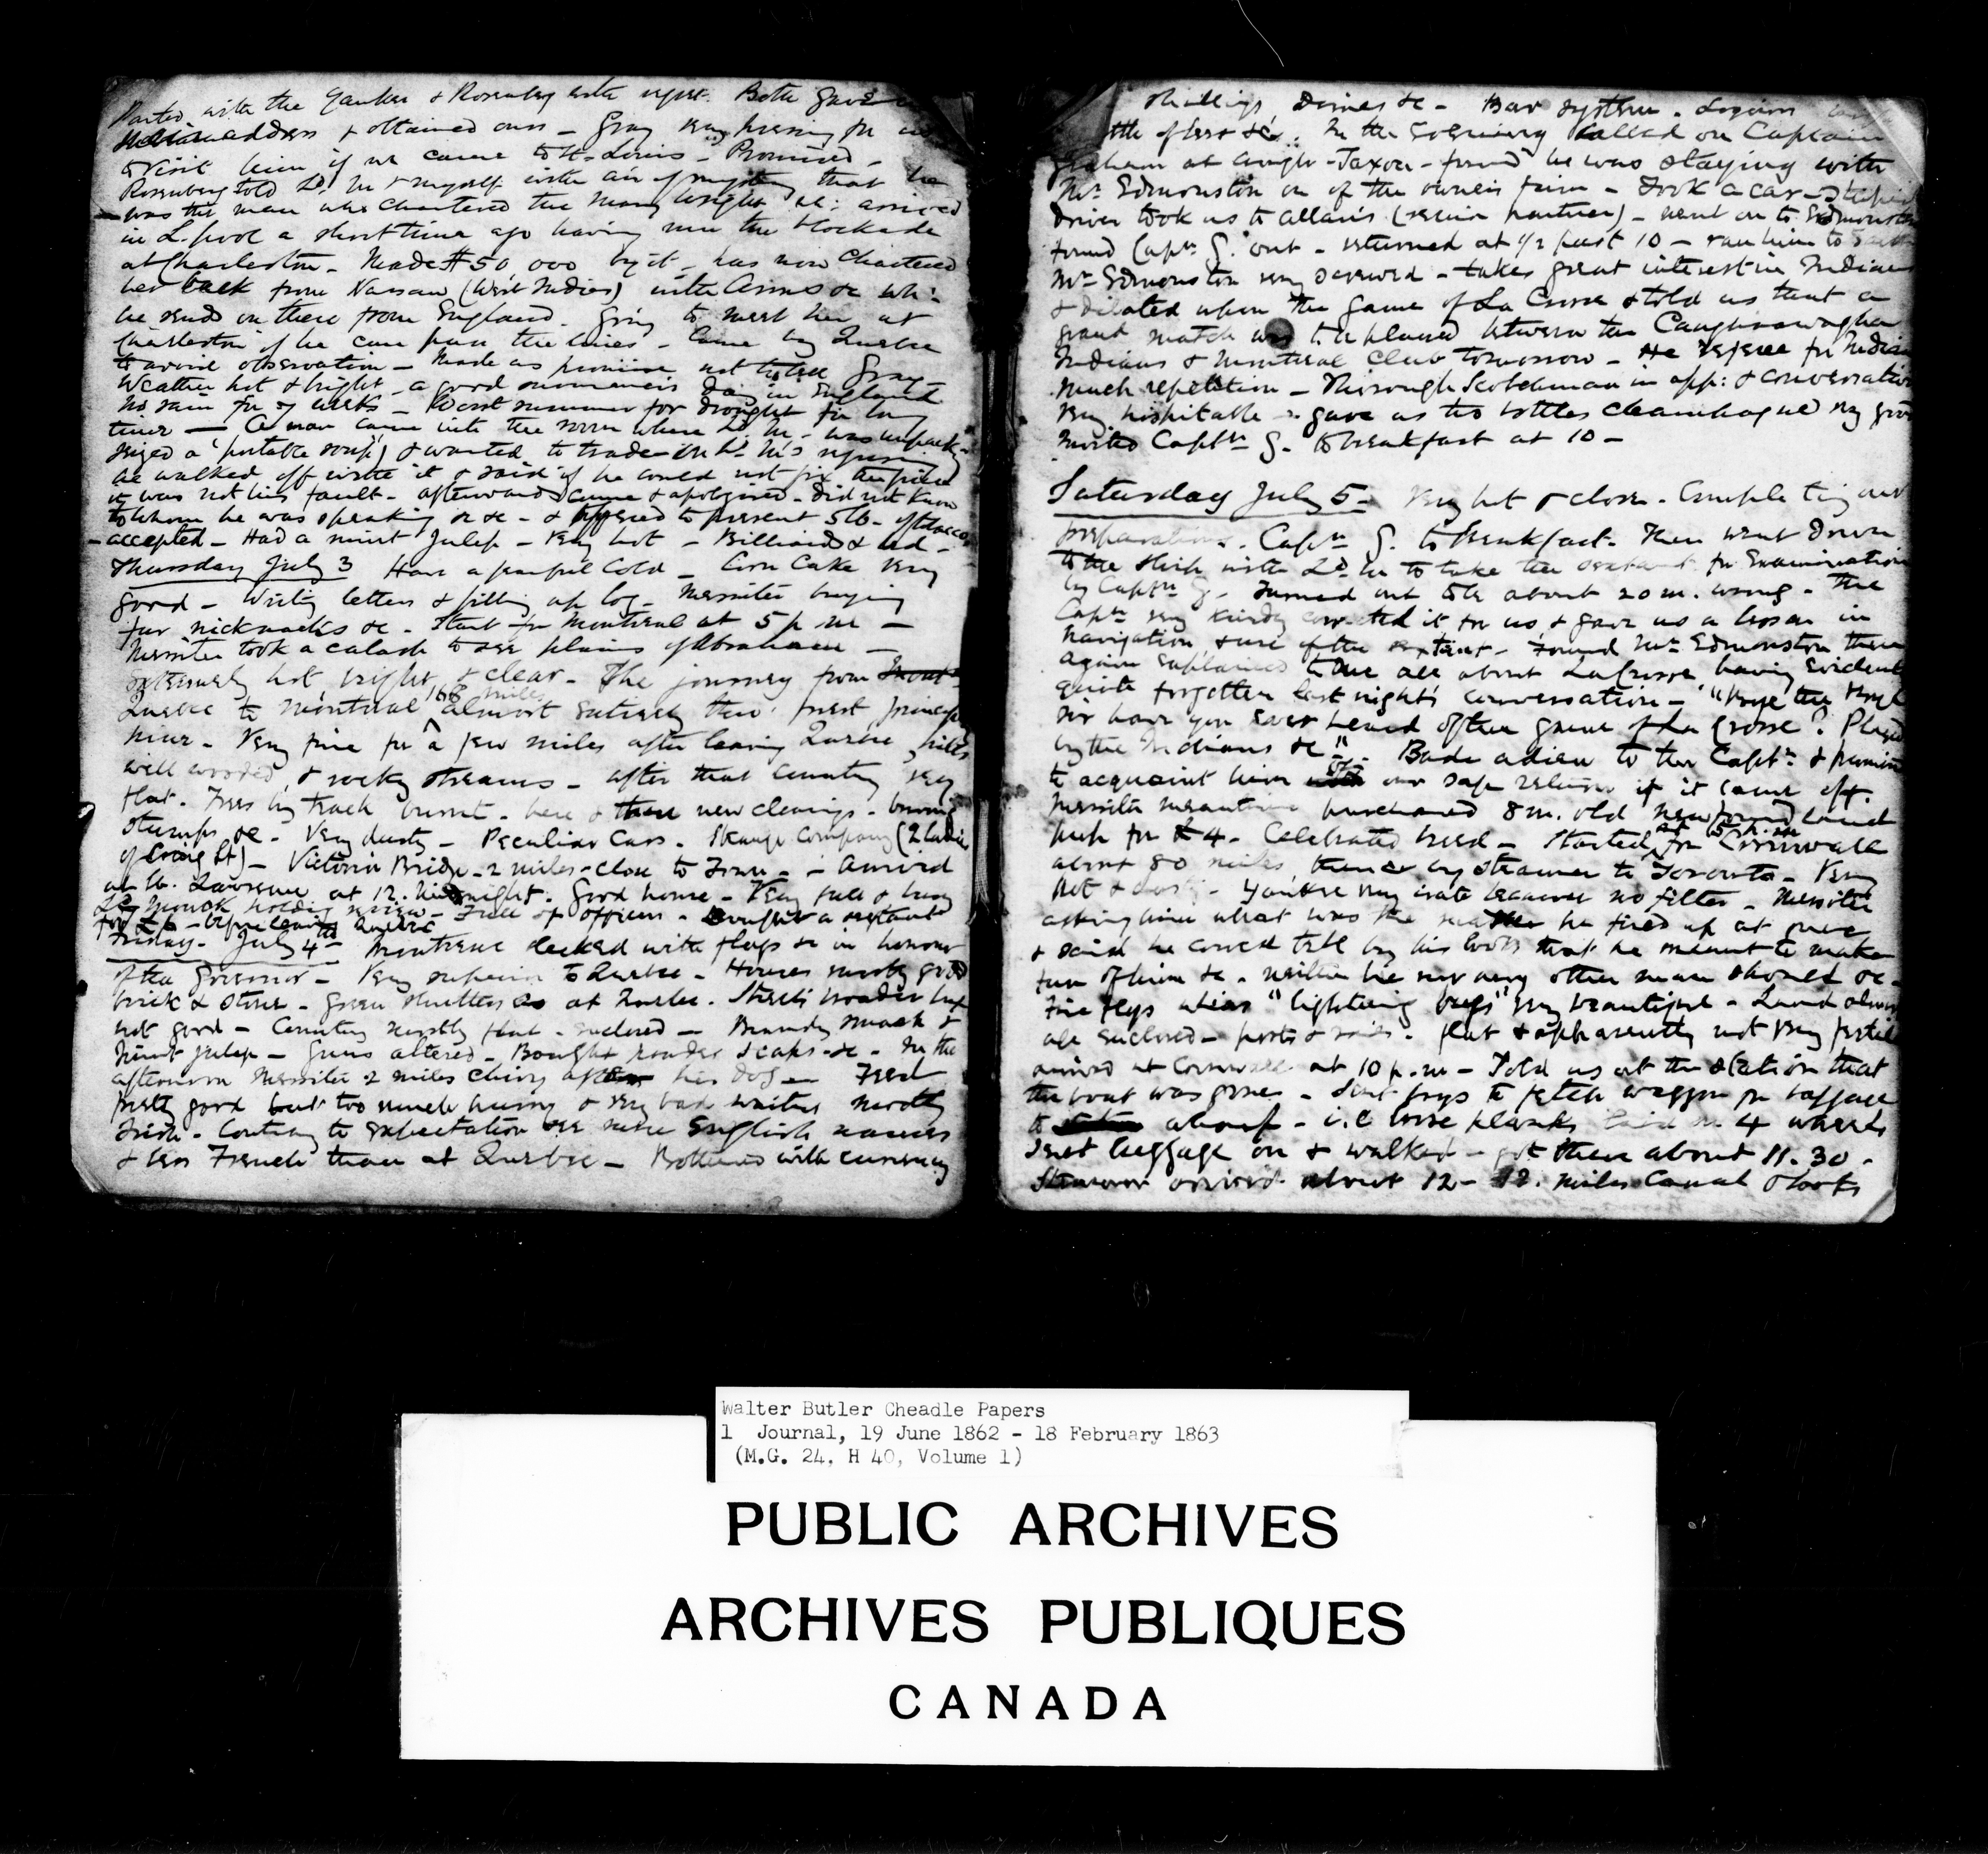 Parted with the Yankee & Rosenberg with regret. Both gave
address & obtained ours - Gray very pressing for us
to visit him if we came to St. Louis - Promised -
Rosenberg told Ld. M & myself with air of mystery that he
was the man who chartered the Mary Wright wh: arrived
in L.pool a short time ago having run the blockade
at Charleston - Made $50,000 by it - has now chartered
her back from Nassau (West Indies) with Arms &c wh:
he sends on there from England. Going to meet her at
Charleston if he can pass the lines - Came by Quebec
to avoid observation - Made us promise not to tell Gray -
Weather hot & bright - a good summer's day in England
No rain for 7 weeks - Worst summer for drought for long
time - A man came into the room where Ld. M. was unpacking
seized a (portable soup) & wanted to trade - On Ld. M's refusing
he walked off with it & said if he could not fix the price
it was not his fault - afterwards came & apologised - did not know
to whom he was speaking &c &c - & offered to present 5 lb. of tobacco
- accepted - Had a mint Julep - Very hot - Billiards & bed -
Thursday July 3 Have a painful Cold - Corn Cake very
good - Writing letters & filling up log - Messiter buying
fur nicknacks &c - Start for Montreal at 5 p m -
Messiter took a calash to see plains of Abraham -
extremely hot bright & clear - The journey from Mont-
Quebec to Montreal 168 miles almost entirely thro' forest
- Very fine for a few miles after leaving Quebec, hills
well wooded & rocky streams - after that country very
flat. Trees by track burnt - here & there new clearings - burnt
stumps &c - Very dusty - Peculiar Cars - Strange company (2 ladies
of Craig St) - Victoria Bridge - 2 miles - close to Town - Arrived
at St. Lawrence at 12. Midnight. Good house - Very full & busy
Ld. Monck holding review - Full of officers - Bought a sextant
for £6 - before leaving Quebec
Friday - July 4th - Montreal decked with flags &c in honour
of the Governor - Very superior to Quebec - Houses mostly good
brick & stone - green shutters as at Quebec. Streets broader but
not good - Country mostly flat - enclosed - Brandy smash &
mint julep - Guns altered - Bought powder & caps &c - In the
afternoon Messiter 2 miles chivy after his dog - Feed
pretty good but too much hurry & very bad waiters mostly
Irish - Contrary to expectation see more English names
& less French than at Quebec - Bothered with currency
shillings, Dimes &c - Bar system - Liquors
bottle of beer &c. In the Evening called on Captain
Graham at Anglo-Saxon - found he was staying with
Mr. Edmonston on of the owners firm - Took a car - Stupid
driver took us to Allan's (senior partner) - went on to Edmonston
found Captn. G. out - returned at 1/2 past 10 - ran him to earth
Mr. Edmonston very screwed - takes great interest in Indians
& dilated upon the game of La Crosse & told us that a
grand match was to be played between the Caughnawagha
Indians & Montreal Club tomorrow - He referee for Indians
Much repetition - Thorough Scotchman in app: & conversation
Very hospitable - gave us two bottles champagne very good
Invited Captn. G. to breakfast at 10 -
Saturday July 5th Very hot & close - Completing our
preparations. Captn G. to breakfast. Then went down
to the ship with Ld. M to take the sextant for Examination
by Captn G. Turned out to be about 20 m. wrong - The
Captn very kindly corrected it for us & gave us a lesson in
navigation & use of the sextant - Found Mr. Edmonston there
again explained to me all about LaCrosse having evidently
quite forgotten last night's conversation - "
Sir have you ever heard of the game of La Crosse? Played
by the Indians &c". Bade adieu to the Captn & promised
to acquaint him of our safe return if it came off.
Messiter meantime purchased 8 m. old newfoundland
pup for £4 - Celebrated breed - Started at 5 p.m for Cornwall
about 80 miles, thence by steamer to Toronto - Very
hot & dusty - Yankee very irate because no filter - Messiter
asking him what was the matter he fired up at once
& said he could tell by his looks that he meant to make
fun of him &c - neither he nor any other man should &c -
Fire flys alias "lightning bugs" very beautiful - Land almost
all enclosed - posts & rails - flat & apparently not very fertile
arrived at Cornwall at 10 p.m - Told us at the station that
the boat was gone - Sent boys to fetch waggon for baggage
to wharf - i.e loose planks laid on 4 wheels
Sent luggage on & walked - got there about 11.30 -
Steamer arrived about 12 - 12 miles Canal & locks
Walter Butler Cheadle Papers
1 Journal, 19 June 1862 - 18 February 1863
(M.G. 24, H 40, Volume 1)
PUBLIC ARCHIVES
ARCHIVES PUBLIQUES
CANADA